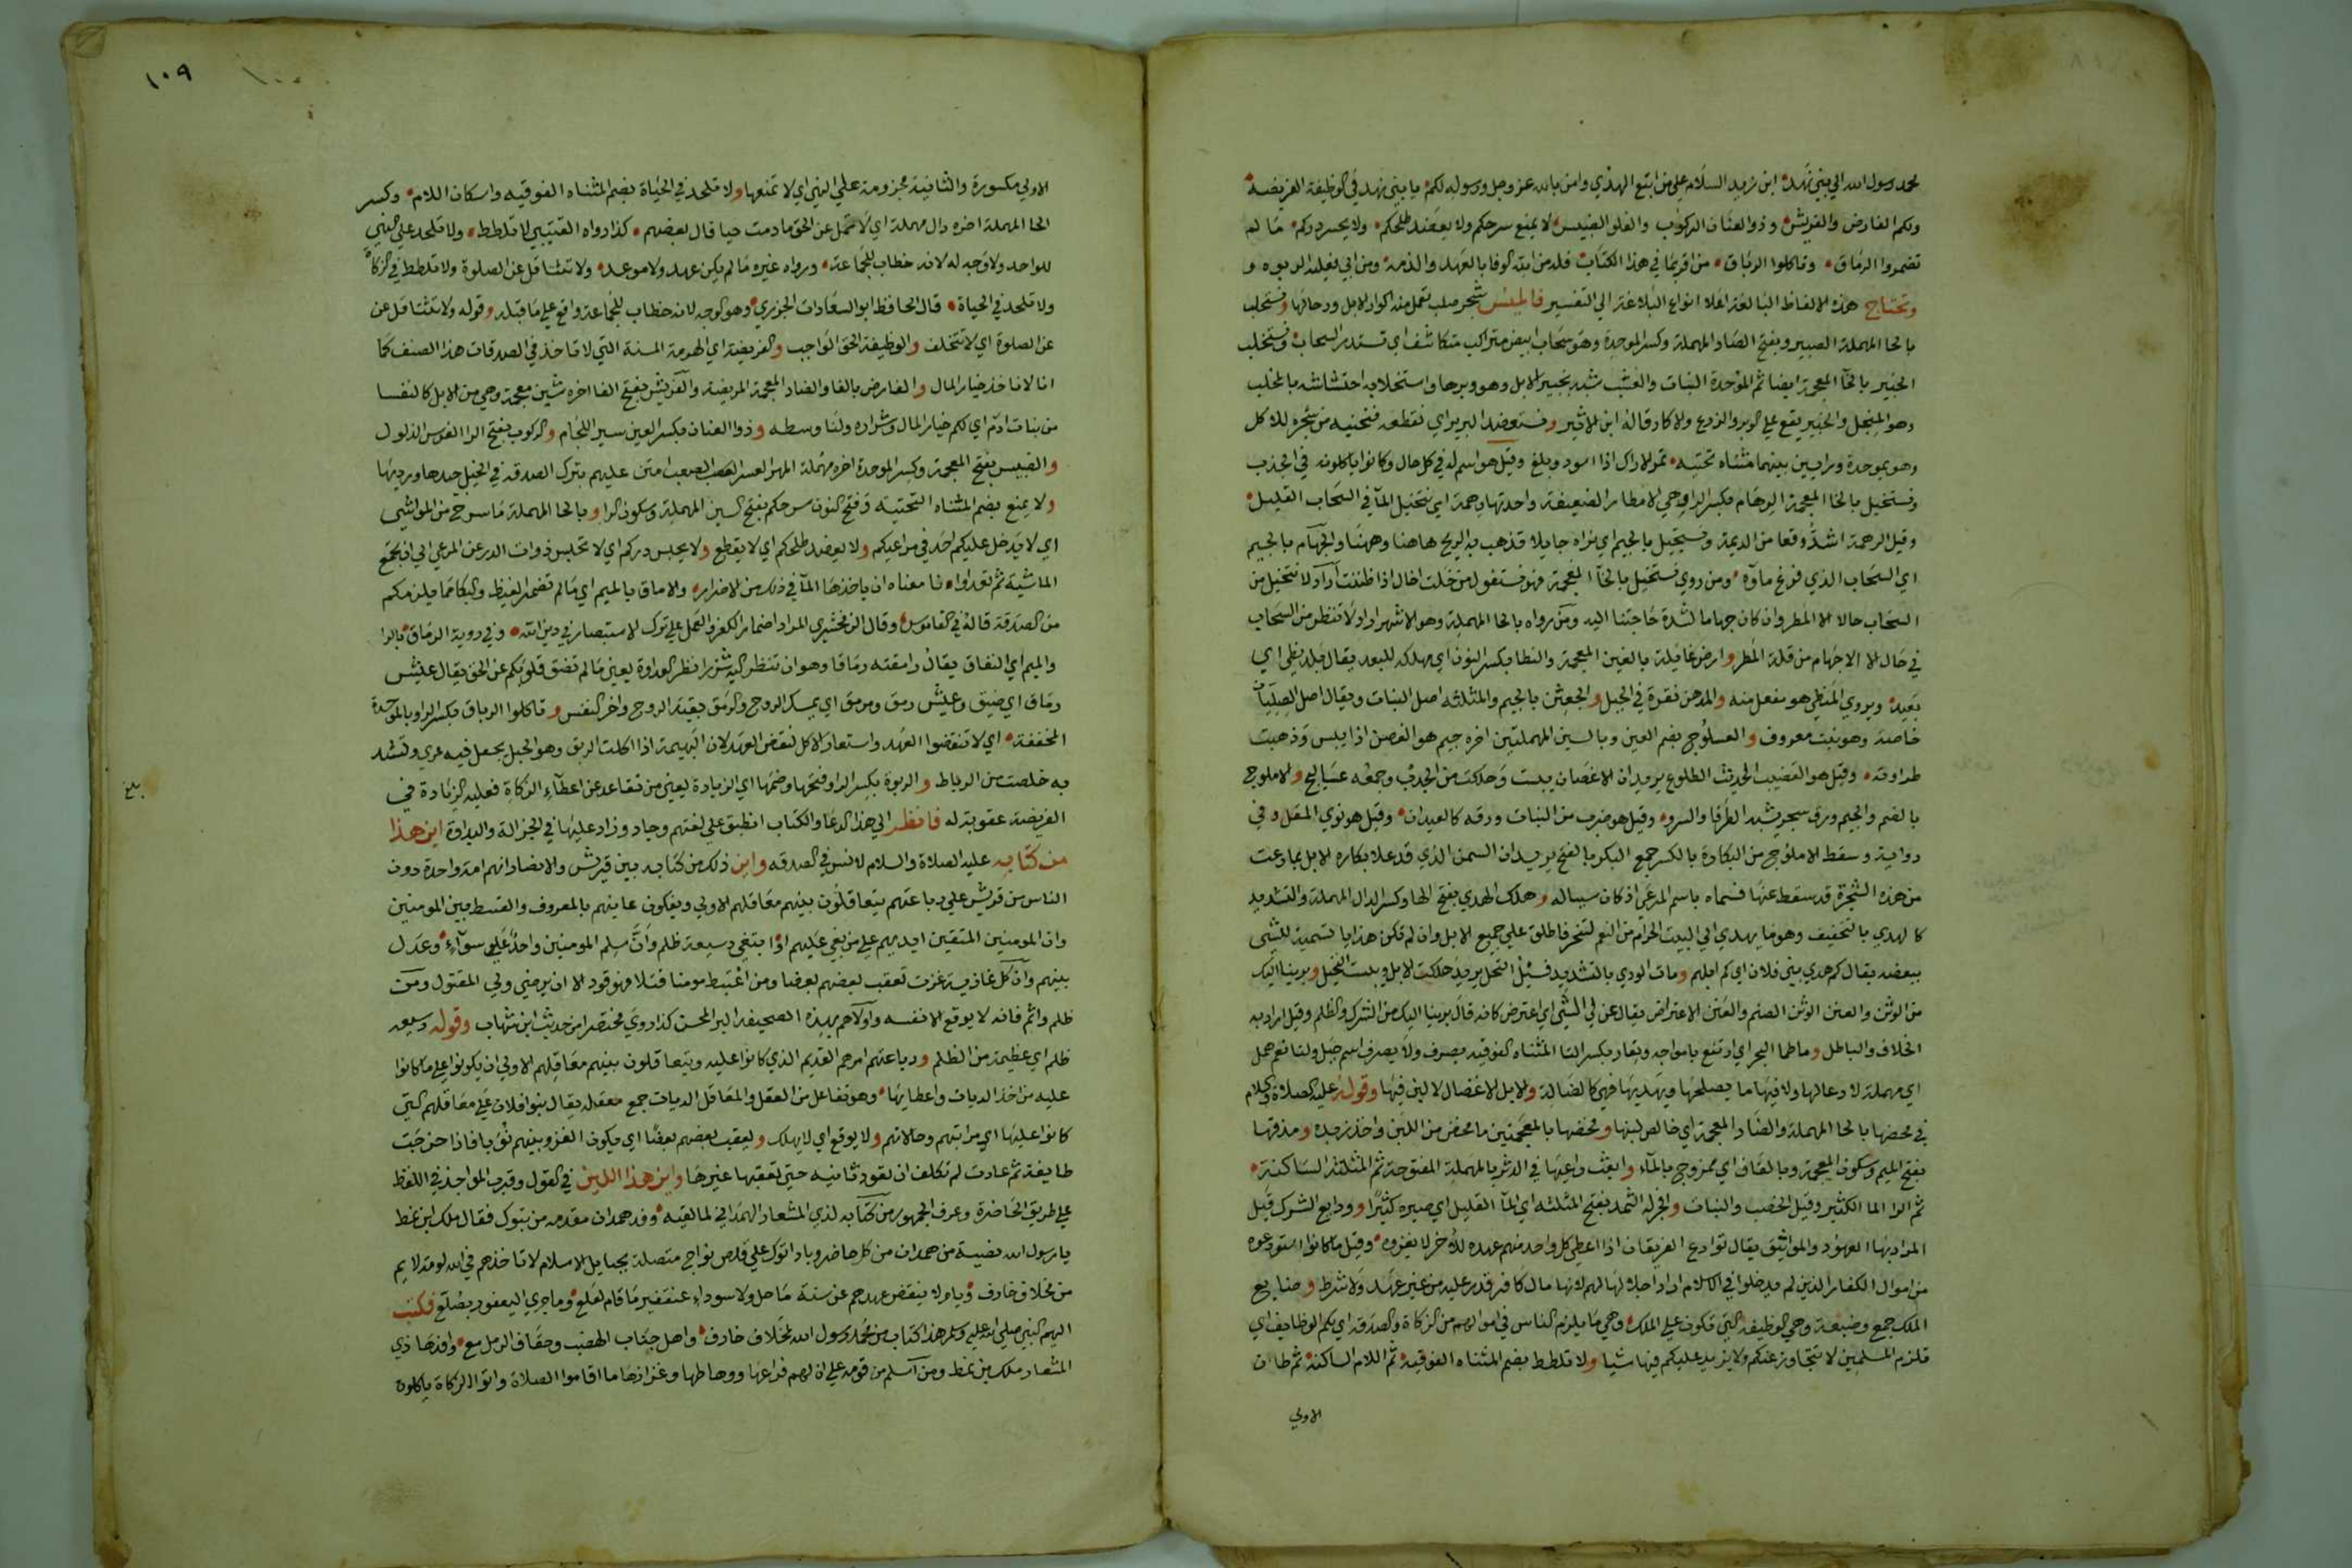 محمد رسول الله الي بني نهد ابن زيد السلام علي من اتبع الهدي وامن بالله عز وجل ورسوله لكم يا بني نهد في الوظيفة الفريضة
ولكم الفارض والفريش وذو العنان الركوب والفلو الضبيس لا يمنع سرحكم ولا يعضد طلحكم ولا يحبس دركم ما لم
تضمروا الرماق وتاكلوا الرباق من اقر بما في هذا الكتاب فله من الله الوفا بالعهد والذمة ومن ابي فعليه الربوة
وتحتاج هذه الالفاظ البالغة اعلا انواع البلاغة الي التفسير فالميس شجر صلب تعمل منه اكوار الابل ورحالها ونستحلب
بالحا المهملة الصبير وبفتح الصاد المهملة وكسر الموحدة وهو سحاب ابيض متراكب متكاثف اي نستدر السحاب ونستخلب
الخبير بالخآ المعجمة ايضا ثم الموحدة النبات والعشب شبه بخبير الابل وهو وبرها واستخلابه احتشاشه بالمخلب
وهو المنجل والخبير يقع علي الوبر والزرع والاكار قاله ابن الاثير ونستعضد البرير اي نقطعه فنجنيه من شجره للاكل
وهو بموحدة ورايين بينهما مثناه تحتيه ثمر الاراك اذا اسود وبلغ وقيل هو اسم له في كل حال وكانوا ياكلونه في الجدب
ونستخيل بالخا المعجمة الرهام بكسر الرا وهي الامطار الضعيفة واحدتها رهمة اي نتخيل المآ في السحاب القليل
وقيل الرهمة اشد وقعا من الديمة ونستجيل بالجيم اي نراه جايلا تذهب به الريح هاهنا وههنا والجهام بالجيم
اي السحاب الذي فرغ ماوه ومن روي نستخيل بالخآ المعجمة فهو نستفعل من خلت اخال اذا ظننت اراد لا نتخيل من
السحاب حالا الا المطر وان كان جهاما لشدة حاجتنا اليه ومن رواه بالحا المهملة وهو الاشهر اراد لا ننظر من السحاب
في حال الا الي جهام من قلة المطر وارض غايلة بالغين المعجمة والنطا بكسر النون اي مهلكه للبعد يقال بلد نطي اي
بعيد ويروي المنطي هو مفعل منه والمدهن نقرة في الجبل والجعثن بالجيم والمثلثه اصل النبات ويقال اصل الصليان
خاصة وهو نبت معروف والعسلوج بضم العين وبالسين المهملتين اخره جيم هو الغصن اذا يبس وذهبت
طراوته وقيل هو القضيب الحديث الطلوع يريد ان الاغصان يبست وهلكت من الجدب وجمعه عساليج والاملوج
بالضم والجيم ورق شجر يشبه الطرفا والسرو وقيل هو ضرب من النبات ورقه كالعيدان وقيل هو نوي المقل وفي
رواية وسقط الاملوج من البكارة بالكسر جمع البكر بالفتح يريد ان السمن الذي قد علا بكاره الابل بما رعت
من هذه الشجرة قد سقط عنها فسماه باسم المرعي اذ كان سبباله وهلك الهدي بفتح الها وكسر الدال المهملة والتشديد
كالهدي بالتخفيف وهو ما يهدي الي البيت الحرام من النعم لتنحر فاطلق علي جميع الابل وان لم تكن هدايا تسمية للشي
ببعضه يقال كم هدي بني فلان اي كم ابلهم ومات الودي بالتشديد فسيل النخل يريد هلكت الابل ويبست النخيل وبرينا اليك
من الوثن والعنن الوثن الصنم والعنن الاعتراض يقال عن لي الشي اي اعترض كانه قال برينا اليك من الشرك والظلم وقيل اراد به
الخلاف والباطل وما طما البحر اي ارتفع بامواجه وتعار بكسر التا المثناه الفوقيه يصرف ولا يصرف اسم جبل ولنا نعم همل
اي مهملة لا رعا لها ولا فيها ما يصلحها ويهديها فهي كالضالة والابل الاغفال لا لبن فيها وقوله عليه الصلاة والسلام
في محضها بالحا المهملة والضاد المعجمة اي خالص لبنها ومخضها بالمعجمتين ما مخض من اللبن واخذ زبده ومذقها
بفتح الميم وسكون المعجمة وبالقاف اي ممزوج بالمآء وابعث راعيها في الدثر بالمهملة المفتوحة ثم المثلثة الساكنة
ثم الرا الما الكثير وقيل الخصب والنبات وافجر له الثمد بفتح المثلثه اي المآ القليل اي صيره كثيرا وودايع الشرك قيل
المراد بها العهود والمواثيق يقال توادع الفريقان اذا اعطي كل واحد منهم عهده للاخر لا يغزوه وقيل ما كانوا استودعوه
من اموال الكفار الذين لم يدخلوا في الاسلام اراد احلالها لهم لانها مال كافر قدر عليه من غير عهد ولا شرط وضايع
الملك جمع وضيعة وهي الوظيفة التي تكون علي الملك وهي ما يلزم الناس في اموالهم من الزكاة والصدقه اي لكم الوظايف اي
تلزم المسلمين لا نتجاوز عنكم ولا يزيد عليكم فيها شيا ولا تلطط بضم المثناه الفوقيه ثم اللام الساكنة ثم طاان
الاولي
١٠٩
الاولي مكسورة والثانية مجزومة علي النهي اي لا تمنعها ولا تلحد في الحياة بضم المثناه الفوقيه واسكان اللام وكسر
الحا المهملة اخره دال مهملة اي لا تمل عن الحق ما دمت حيا قال بعضهم كذا رواه القتيبي لا تلطط ولا تلحد علي النهي
للواحد ولا وجه له لانه خطاب للجماعة ورواه غيره ما لم يكن عهد ولا موعد ولا تثاقل عن الصلوة ولا تلطط في الزكاة
ولا تلحد في الحياة قال الحافظ ابو السعادات الجزري وهو الوجه لانه خطاب للجماعة واقع علي ما قبله وقوله ولا تتثاقل عن
عن الصلوة اي لا تتخلف والوظيفة الحق الواجب والفريضة اي الهرمة المسنة التي لا تاخذ في الصدقات هذا الصنف كما
انا لا ناخذ خيار المال والفارض بالفا والضاد المعجمة المريضة والفريش بفتح الفا اخره شين معجمة وهي من الابل كالنفسا
من بنات ادم اي لكم خيار المال وشراره ولنا وسطه وذوا العنان بكسر العين سير اللجام والركوب بفتح الرا الفرس الذلول
والضبيس بفتح المعجمة وكسر الموحدة اخره مهملة المهر العسر الصعب امتن عليهم بترك الصدقة في الخيل جيدها ورديها
ولا يمنع بضم المثناه التحتيه وفتح النون سرحكم بفتح السين المهملة وسكون الرا وبالحا المهملة ما سرح من المواشي
اي لا يدخل عليكم احد في مراعيكم ولا يعضد طلحكم اي لا يقطع ولا يحبس دركم اي لا تحبس ذوات الدر عن المرعي الي ان تجتمع
الماشية ثم تعد او معناه ان ياخذها المآ في ذلك من الاضرار والاماق بالميم اي ما لم تضمر الغيظ والبكا مما يلزمكم
من الصدقة قاله في القاموس وقال الزمخشري المراد اضمار الكفر والعمل علي ترك الاستبصار في دين الله وفي رواية الرماق بالرا
والميم اي النفاق يقال رامقته رماقا وهو ان تنظر اليه شزرا نظر العداوة يعني ما لم تضق قلوبكم عن الحق يقال عيش
رماق اي ضيق وعيش رمق ومرمق اي يمسك الروح والرمق بقية الروح واخر النفس وتاكلوا الرباق بكسر الرا وبالموحدة
المخففة اي لا تنقضوا العهد واستعار الاكل لنقض العهد لان البهيمة اذا اكلت الربق وهو الحبل يجعل فيه عري وتشد
به خلصت من الرباط والربوة بكسر الرا وفتحها وضمها اي الزيادة يعني من تقاعد عن اعطآء الزكاة فعليه الزيادة في
الفريضة عقوبة له فانظر الي هذا الدعا والكتاب انطبق علي لغتهم وجاد وزاد عليها في الجزالة والبداوة اين هذا
من كتابه عليه الصلاة والسلام لانس في الصدقه واين ذلك من كتابه بين قريش والانصار انهم امة واحدة دون
الناس من قريش علي رباعتهم يتعاقلون بينهم معاقلهم الاولي ويفكون عانيهم بالمعروف والقسط بين المومنين
وان المومنين المتقين ايديهم علي من بغي عليهم او ابتغي دسيعة ظلم وان سلم المومنين واحد علي سوآء وعدل
بينهم وان كل غازية غزت تعقب بعضهم بعضا ومن اغتبط مومنا قتلا فهو قود الا ان يرضي ولي المقتول ومن
ظلم واثم فانه لا يوتغ الا نفسه واولاهم بهذه الصحيفة البر المحسن كذا روي مختصرا من حديث ابن شهاب وقوله دسيعة
ظلم اي عظيمة من الظلم ورباعتهم امرهم القديم الذي كانوا عليه ويتعاقلون بينهم معاقلهم الاولي اي يكونوا علي ما كانوا
عليه من اخذ الديات واعطايها وهو تفاعل من العقل والمعاقل الديات جمع معقلة يقال بنوا فلان علي معاقلهم التي
كانوا عليها اي مراتبهم وحالاتهم ولا يوتغ اي لا يهلك ويعقب بعضهم بعضا اي يكون الغزو بينهم نوبا فاذا خرجت
طايفة ثم عادت لم تكلف ان تعود ثانيه حتي تعقبها غيرها واين هذا اللين في القول وقرب الماخذ في اللفظ
علي طريق الحاضرة وعرف الجمهور من كتابه لذي المشعار الهمداني لما لقيه وفد همدان مقدمه من تبوك فقال ملك ابن نمط
يا رسول الله نصية من همدان من كل حاضر وباد اتوك علي قلص نواج متصلة بحبايل الاسلام لا تاخذهم في الله لومة لايم
من مخلاف خارف ويام لا ينقض عهدهم عن سنة ماحل ولا سوداء عنقفير ما قام لعلع وما جري اليعفور بصلع فكتب
اليهم النبي صلي الله عليه وسلم هذا كتاب من محمد رسول الله لمخلاف خارف واهل جناب الهضب وحقاف الرمل مع وافدها ذي
المشعار ملك بن نمط ومن اسلم من قومه علي ان لهم فراعها ووهاطها وعزازها ما اقاموا الصلاة واتوا الزكاة ياكلون
بلغ